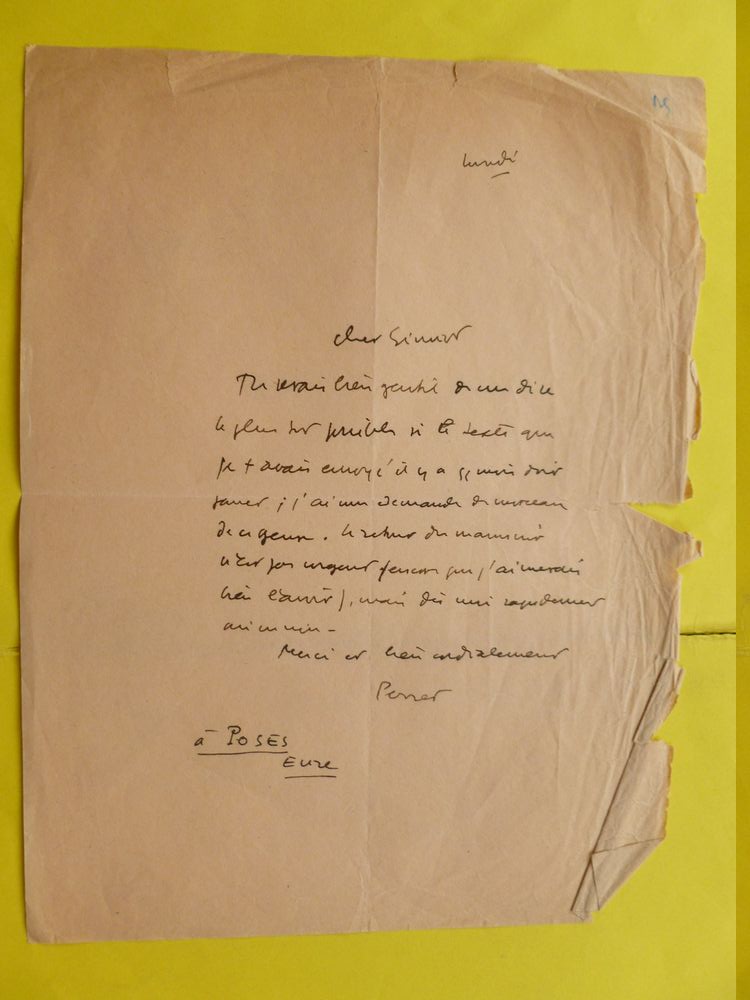 lundi
cher
Tu serais bien gentil de me dire
le plus tôt possible si le texte que
je t'avais envoyé il y a
; j'ai une demande de morceau
de ce genre. le retour du manuscrit
n'est pas urgent (encore que j'aimerais
bien l'avoir), mais dis moi rapidement
Merci et bien cordialement
Perret
à POSES
EURE